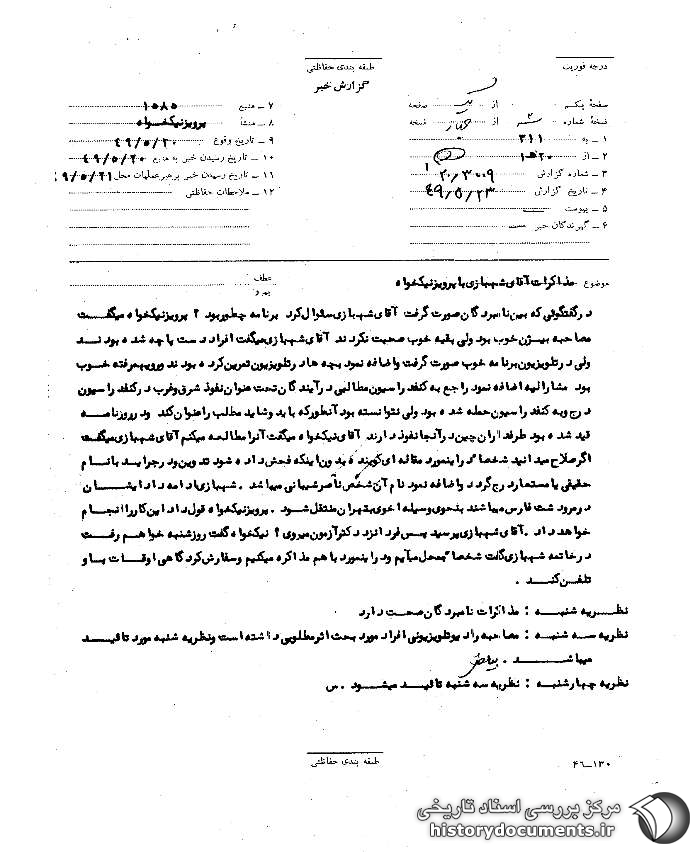 درجه فوریت
طبقه بندی حفاظتی
گزارش خبر
صفحه یکم از یک صفحه
نسخه شماره ۳ از چهار نسخه
۱ ـ به ۳۱۱
۲ ـ از ۲۰ هـ ۱
۳ ـ شماره گزارش ۲۰/۳۰۰۹
۴ ـ تاریخ گزارش ۴۹/۵/۲۳
۵ ـ پیوست
۶ ـ گیرندگان خبر
۷ ـ منبع ۱۰۸۵
۸ ـ منشأ پرویز نیکخواه
۹ ـ تاریخ وقوع ۴۹/۵/۲۰
۱۰ ـ تاریخ رسیدن خبر به منبع ۴۹/۵/۲۰
۱۱ ـ تاریخ رسیدن خبر برهبر عملیات محل ۴۹/۵/۲۱
۱۲ ـ ملاحظات حفاظتی
موضوع مذاکرات آقای شهبازی با پرویز نیکخواه
عطف
پیرو
در گفتگوئی که بین نامبردگان صورت گرفت آقای شهبازی سئوال کرد برنامه چطور بود ؟ پرویز نیکخواه میگفت
مصاحبه بیژن خوب بود ولی بقیه خوب صحبت نکردند آقای شهبازی میگفت افراد دست پاچه شده بودند
ولی در تلویزیون برنامه خوب صورت گرفت واضافه نمود بچه ها در تلویزیون تمرین کرده بودند ورویهمرفته خوب
بود مشارالیه اضافه نمود راجع به کنفدراسیون مطالبی در آیندگان تحت عنوان نفوذ شرق وغرب در کنفدراسیون
درج وبه کنفدراسیون حمله شده بود ولی نتوانسته بود آنطور که باید وشاید مطلب را عنوان کند ودر روزنامه
قید شده بود طرفداران چین در آنجا نفوذ دارند آقای نیکخواه میگفت آنرا مطالعه میکنم آقای شهبازی میگفت
اگر صلاح میدانید شخصا گرد اینمورد مقاله ای گوینده بدون اینکه فحش داده شود تدوین ودر جراید با نام
حقیقی یا مستعار درج گردد واضافه نمود نام آن شخص ناصر شیبانی میباشد . شهبازی ادامه داد ایشان
در مرودشت فارس میباشند بنحوی وسیله اخوی بتهران منتقل شود . پرویز نیکخواه قول داد این کار را انجام
خواهد داد . آقای شهبازی پرسید پس فردا نزد دکتر آزمون میروی ؟ نیکخواه گفت روز شنبه خواهم رفت
در خاتمه شهبازی گفت شخصا بمحل میآیم ودر اینمورد با هم مذاکره میکنیم وسفارش کرد گاهی اوقات با او
تلفن کند .
نظریه شنبه : مذاکرات نامبردگان صحت دارد
نظریه سه شنبه : مصاحبه رادیو تلویزیونی افراد مورد بحث اثر مطلوبی داشته است ونظریه شنبه مورد تائید
میباشد .
نظریه چهارشنبه : نظریه سه شنبه تائید میشود . س
طبقه بندی حفاظتی
۴۶ـ۱۳۰
مرکز بررسی اسناد تاریخی
historydocuments.ir